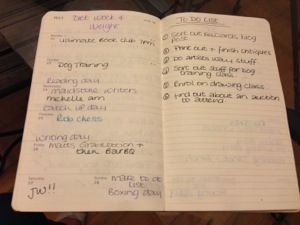 Diet week 4
Weight
Ultimate Book Club 7pm
Dog Training
Reading day
Maidstone Writers
michelle ann
catch up day
Rob chess
Writing day
Matts Graduation +
then BarBQ
Make to do
list
Boxing day
JW!!
TO DO LIST
① Sort out records blog
post
② Print out + finish antiques
③ Do artists way stuff
④ Sort out stuff for dog
training class
⑤ Enrol on drawing class
⑥ Find out about an auction
to attend